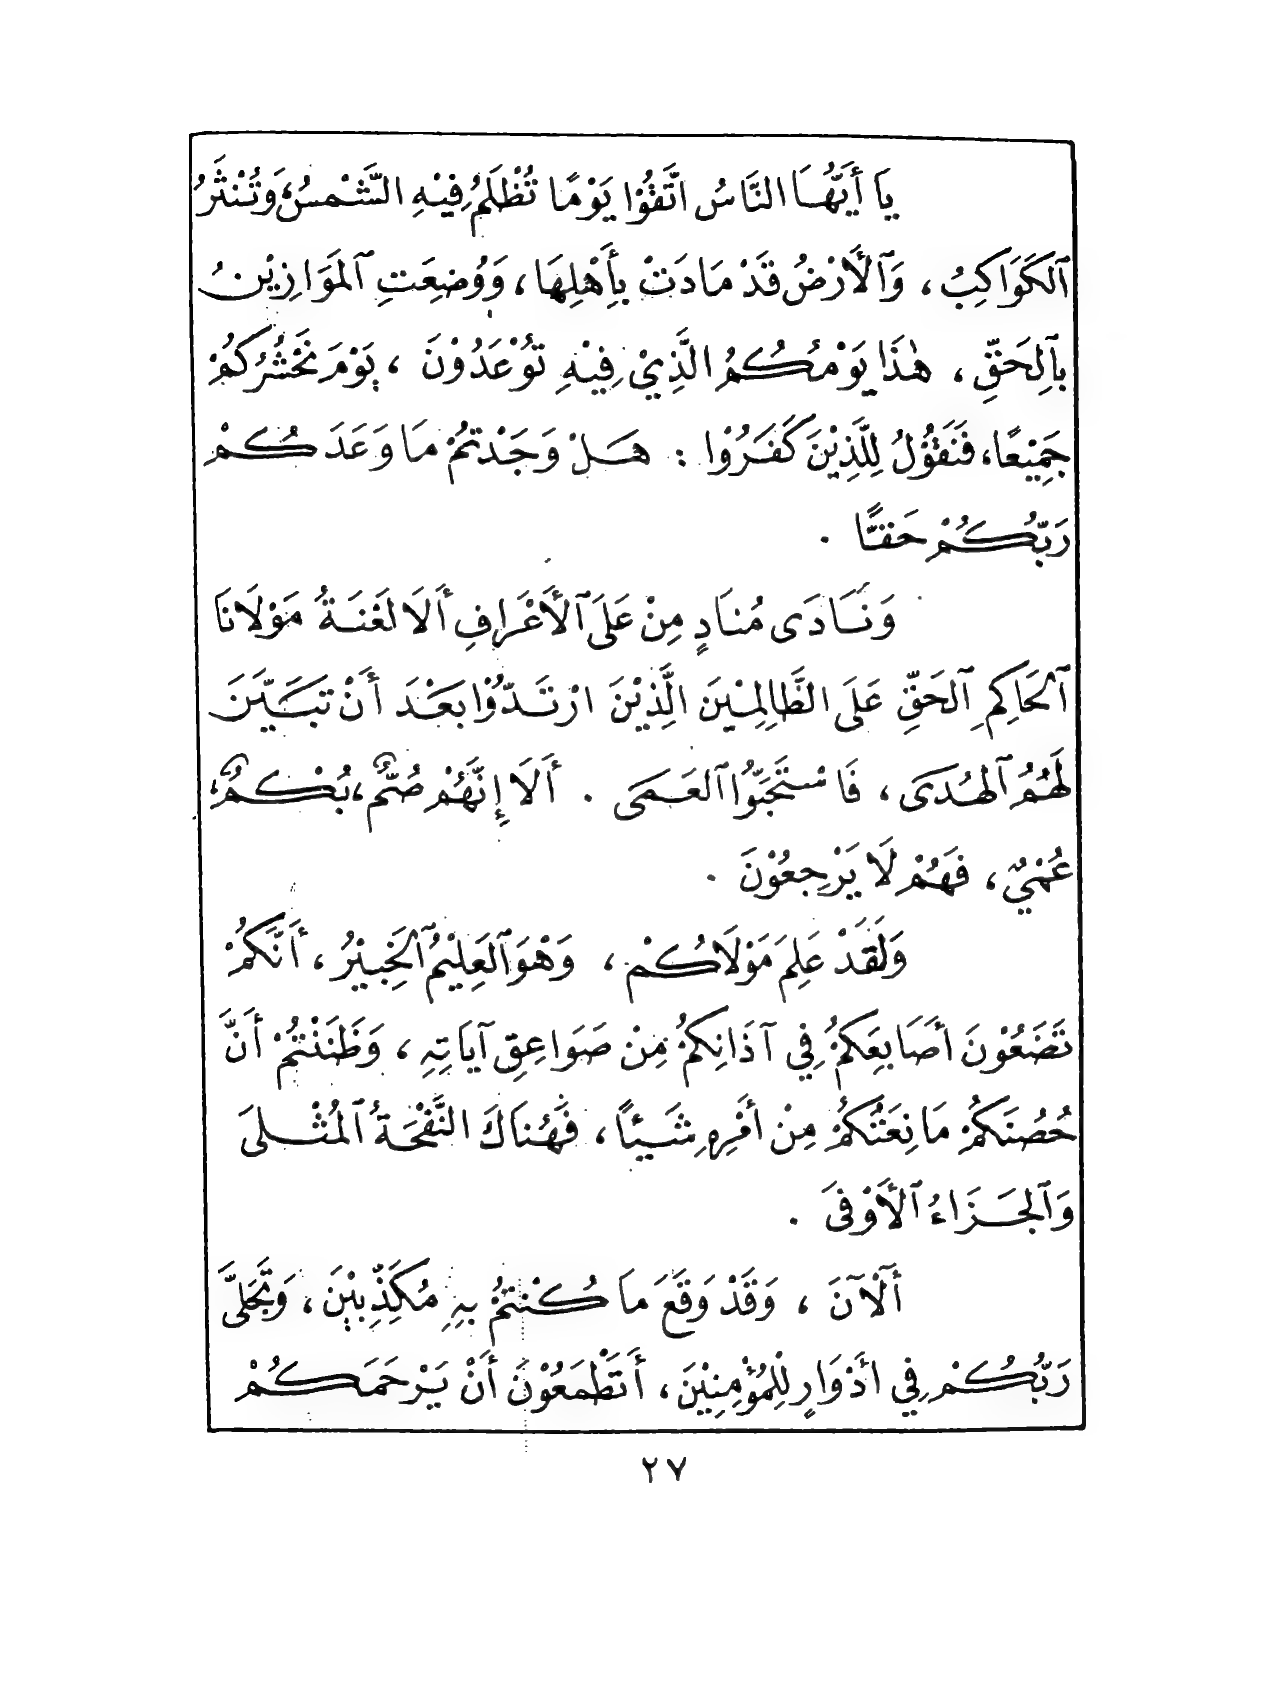 يَا أَيُّهَا النَّاسُ اتَّقُوْا يَوْمًا تُظْلَمُ فِيْهِ الشَّمْسُ، وَتُنْثَرُ
ٱلكَوَاكِبُ ، وَٱلأَرْضُ قَدْ مَادَتْ بِأَهْلِهَا ، وَوُضِعَتِ ٱلمَوَازِيْنُ
بِٱلحَقِّ ، هٰذَا يَوْمُكُمُ الَّذِيْ فِيْهِ تُوْعَدُوْنَ ، يَوْمَ نَحْشُرُكُمْ
جَمِيْعًا، فَنَقُوْلُ لِلَّذِيْنَ كَفَرُوْا : هَلْ وَجَدْتُمْ مَا وَعَدَكُمْ
رَبُّكُمْ حَقًّا .
وَنَادَى مُنَادٍ مِنْ عَلَى ٱلأَعْرَافِ أَلَا لَعْنَةُ مَوْلَانَا
ٱلحَاكِمِ ٱلحَقِّ عَلَى الظَّالِمِيْنَ الَّذِيْنَ ارْتَدُّوْا بَعْدَ أَنْ تَبَيَّنَ
لَهُمُ ٱلهُدَى ، فَاسْتَحَبُّوا ٱلعَمَى . أَلَا إِنَّهُمْ صُمٌّ، بُكْمٌ،
عُمْيٌ ، فَهُمْ لَا يَرْجِعُوْنَ .
وَلَقَدْ عَلِمَ مَوْلَاكُمْ ، وَهْوَ ٱلعَلِيْمُ ٱلخَبِيْرُ ، أَنَّكُمْ
تَضَعُوْنَ أَصَابِعَكُمْ فِي آذَانِكُمْ مِنْ صَوَاعِقِ آيَاتِهِ ، وَظَنَنْتُمْ أَنَّ
حُصُنَكُمْ مَانِعَتُكُمْ مِنْ أَمْرِهِ شَيْئًا ، فَهُنَاكَ النَّفْحَةُ ٱلمُثْلَى
وَٱلجَزَاءُ ٱلأَوْفَى .
أَلْآنَ ، وَقَدْ وَقَعَ مَا كُنْتُمْ بِهِ مُكَذِّبِيْنَ ، وَتَجَلَّى
رَبُّكُمْ فِي أَدْوَارٍ لِلْمُؤْمِنِيْنَ ، أَتَطْمَعُوْنَ أَنْ يَرْحَمَكُمْ
٢٧